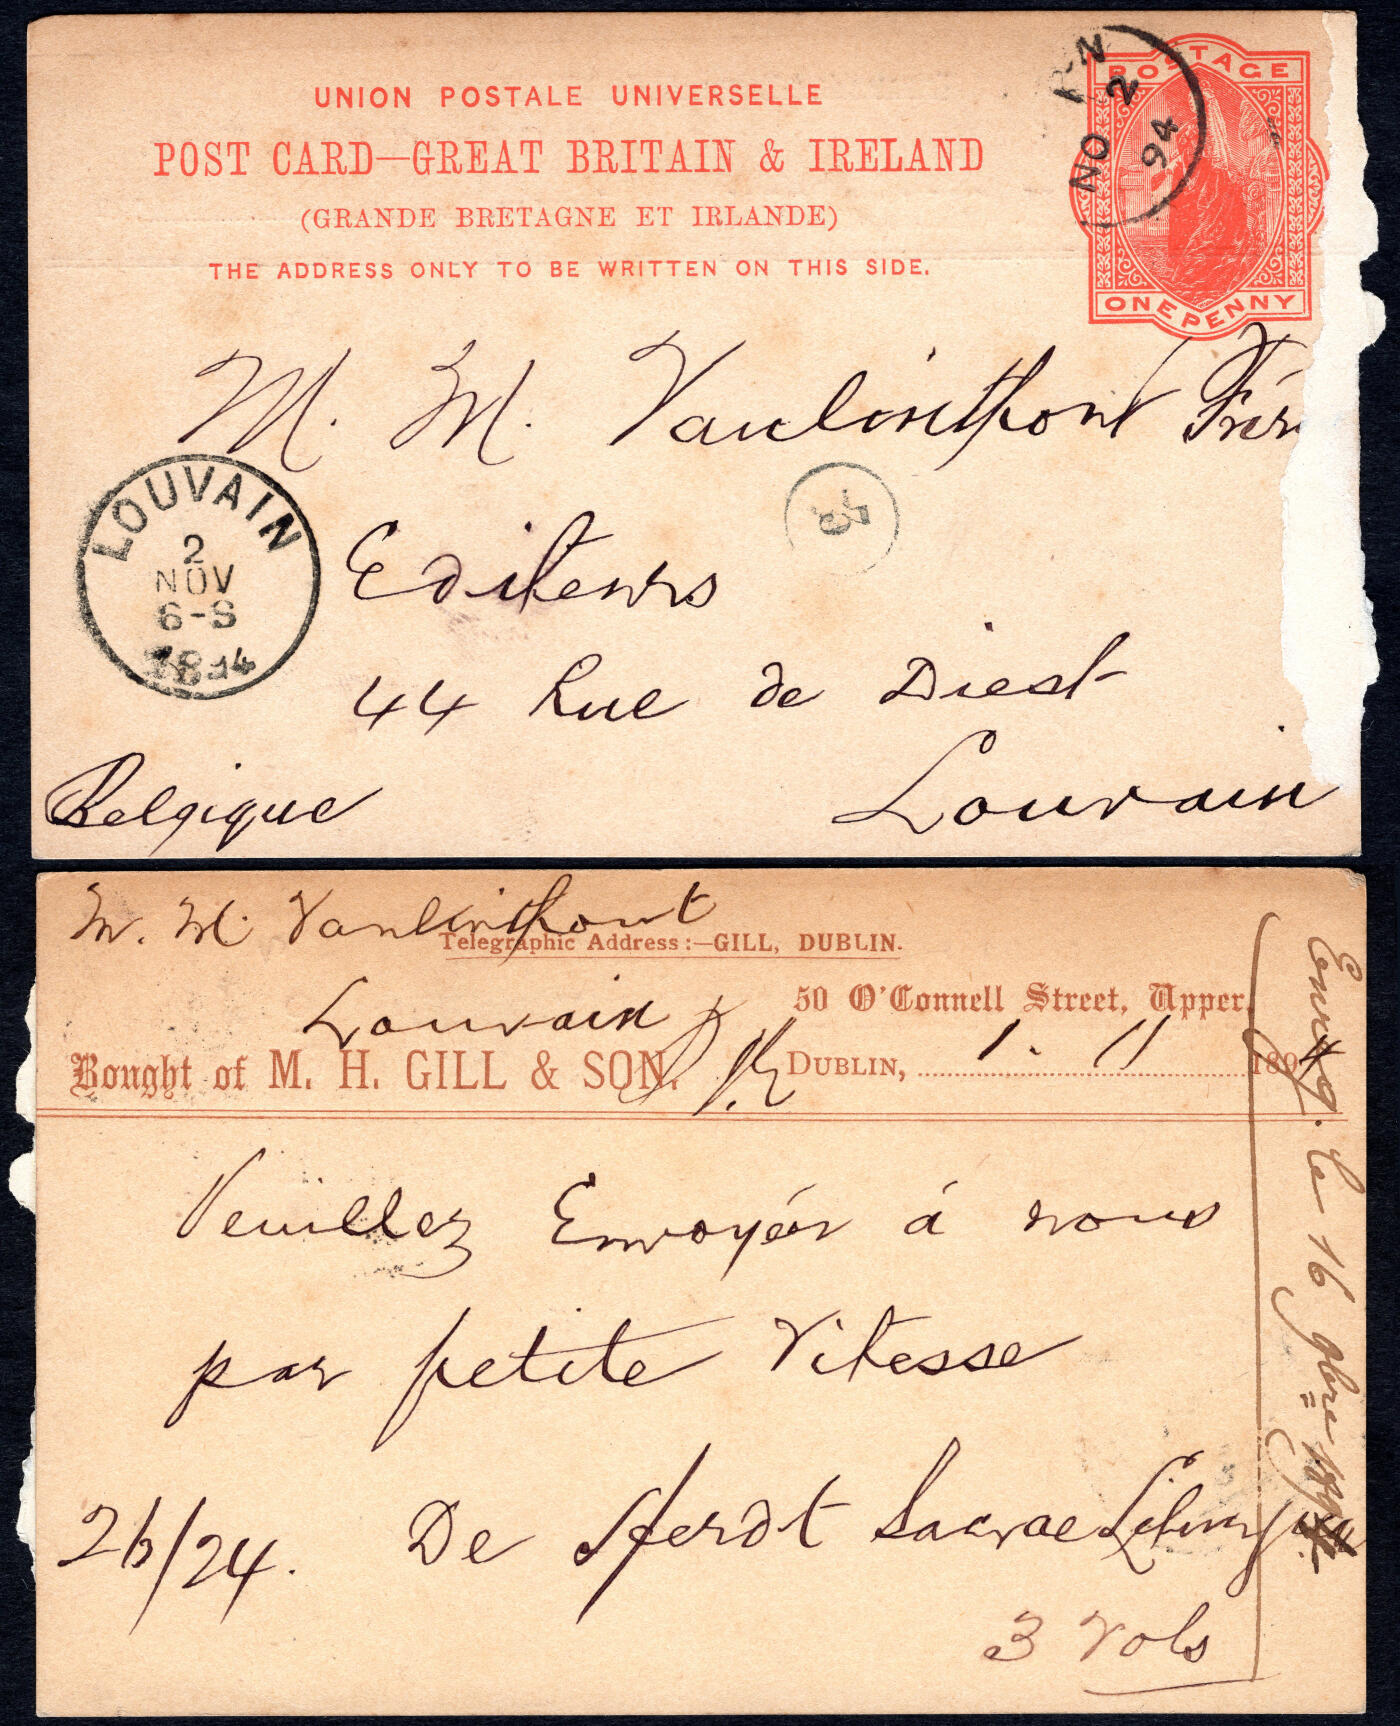 UNION POSTALE UNIVERSELLE
POST CARD—GREAT BRITAIN & IRELAND
(GRANDE BRETAGNE ET IRLANDE)
THE ADDRESS ONLY TO BE WRITTEN ON THIS SIDE.
POSTAGE
ONE PENNY
NO 2
94
M. M. Vanlinthout Frèr
LOUVAIN
2
NOV
6-8
Editeurs
44 Rue de Diest
Louvain
Belgique
M. M. Vanlinthout
Telegraphic Address:—GILL, DUBLIN.
Louvain
50 O'Connell Street, Upper,
Bought of M. H. GILL & SON.
DUBLIN, 1. 11 1894
Veuillez Envoyér á nous
par petite Vitesse
26/24. De Herdt Sacrae Liturgiae
3 Vols
le 16 9bre